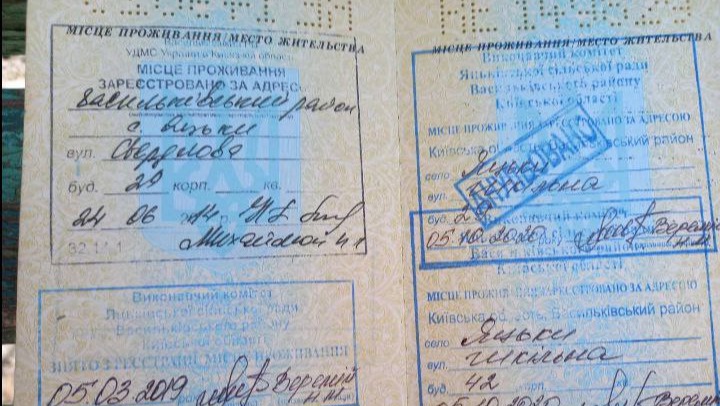 МІСЦЕ ПРОЖИВАННЯ/МЕСТО ЖИТЕЛЬСТВА
УДМС України в Київській області
МІСЦЕ ПРОЖИВАННЯ
ЗАРЕЄСТРОВАНО ЗА АДРЕС
Васильківський район
с. Яцьки
вул. Свердлова
буд. 29 корп. кв.
24 06 14
32 14 1
05.03.2019
Виконавчий комітет
Яцьківської сільської ради
Васильківського району
Київської області
ЗНЯТО З РЕЄСТРАЦІЇ МІСЦЕ ПРОЖИВАННЯ
МІСЦЕ ПРОЖИВАННЯ/МЕСТО ЖИТЕЛЬСТВА
Виконавчий комітет
Яцьківської сільської ради
Васильківського району
Київської області
МІСЦЕ ПРОЖИВАННЯ ЗАРЕЄСТРОВАНО ЗА АДРЕСОЮ
Київська область, Васильківський район
село Яцьки
Шкільна
буд. 2
АНУЛЬОВАНО
Виконавчий комітет
05.10.2020 Веремій Н.М.
Васильківського району
Київської області
МІСЦЕ ПРОЖИВАННЯ ЗАРЕЄСТРОВАНО ЗА АДРЕСОЮ
Київська область, Васильківський район
село Яцьки
вул. Шкільна
буд. 42